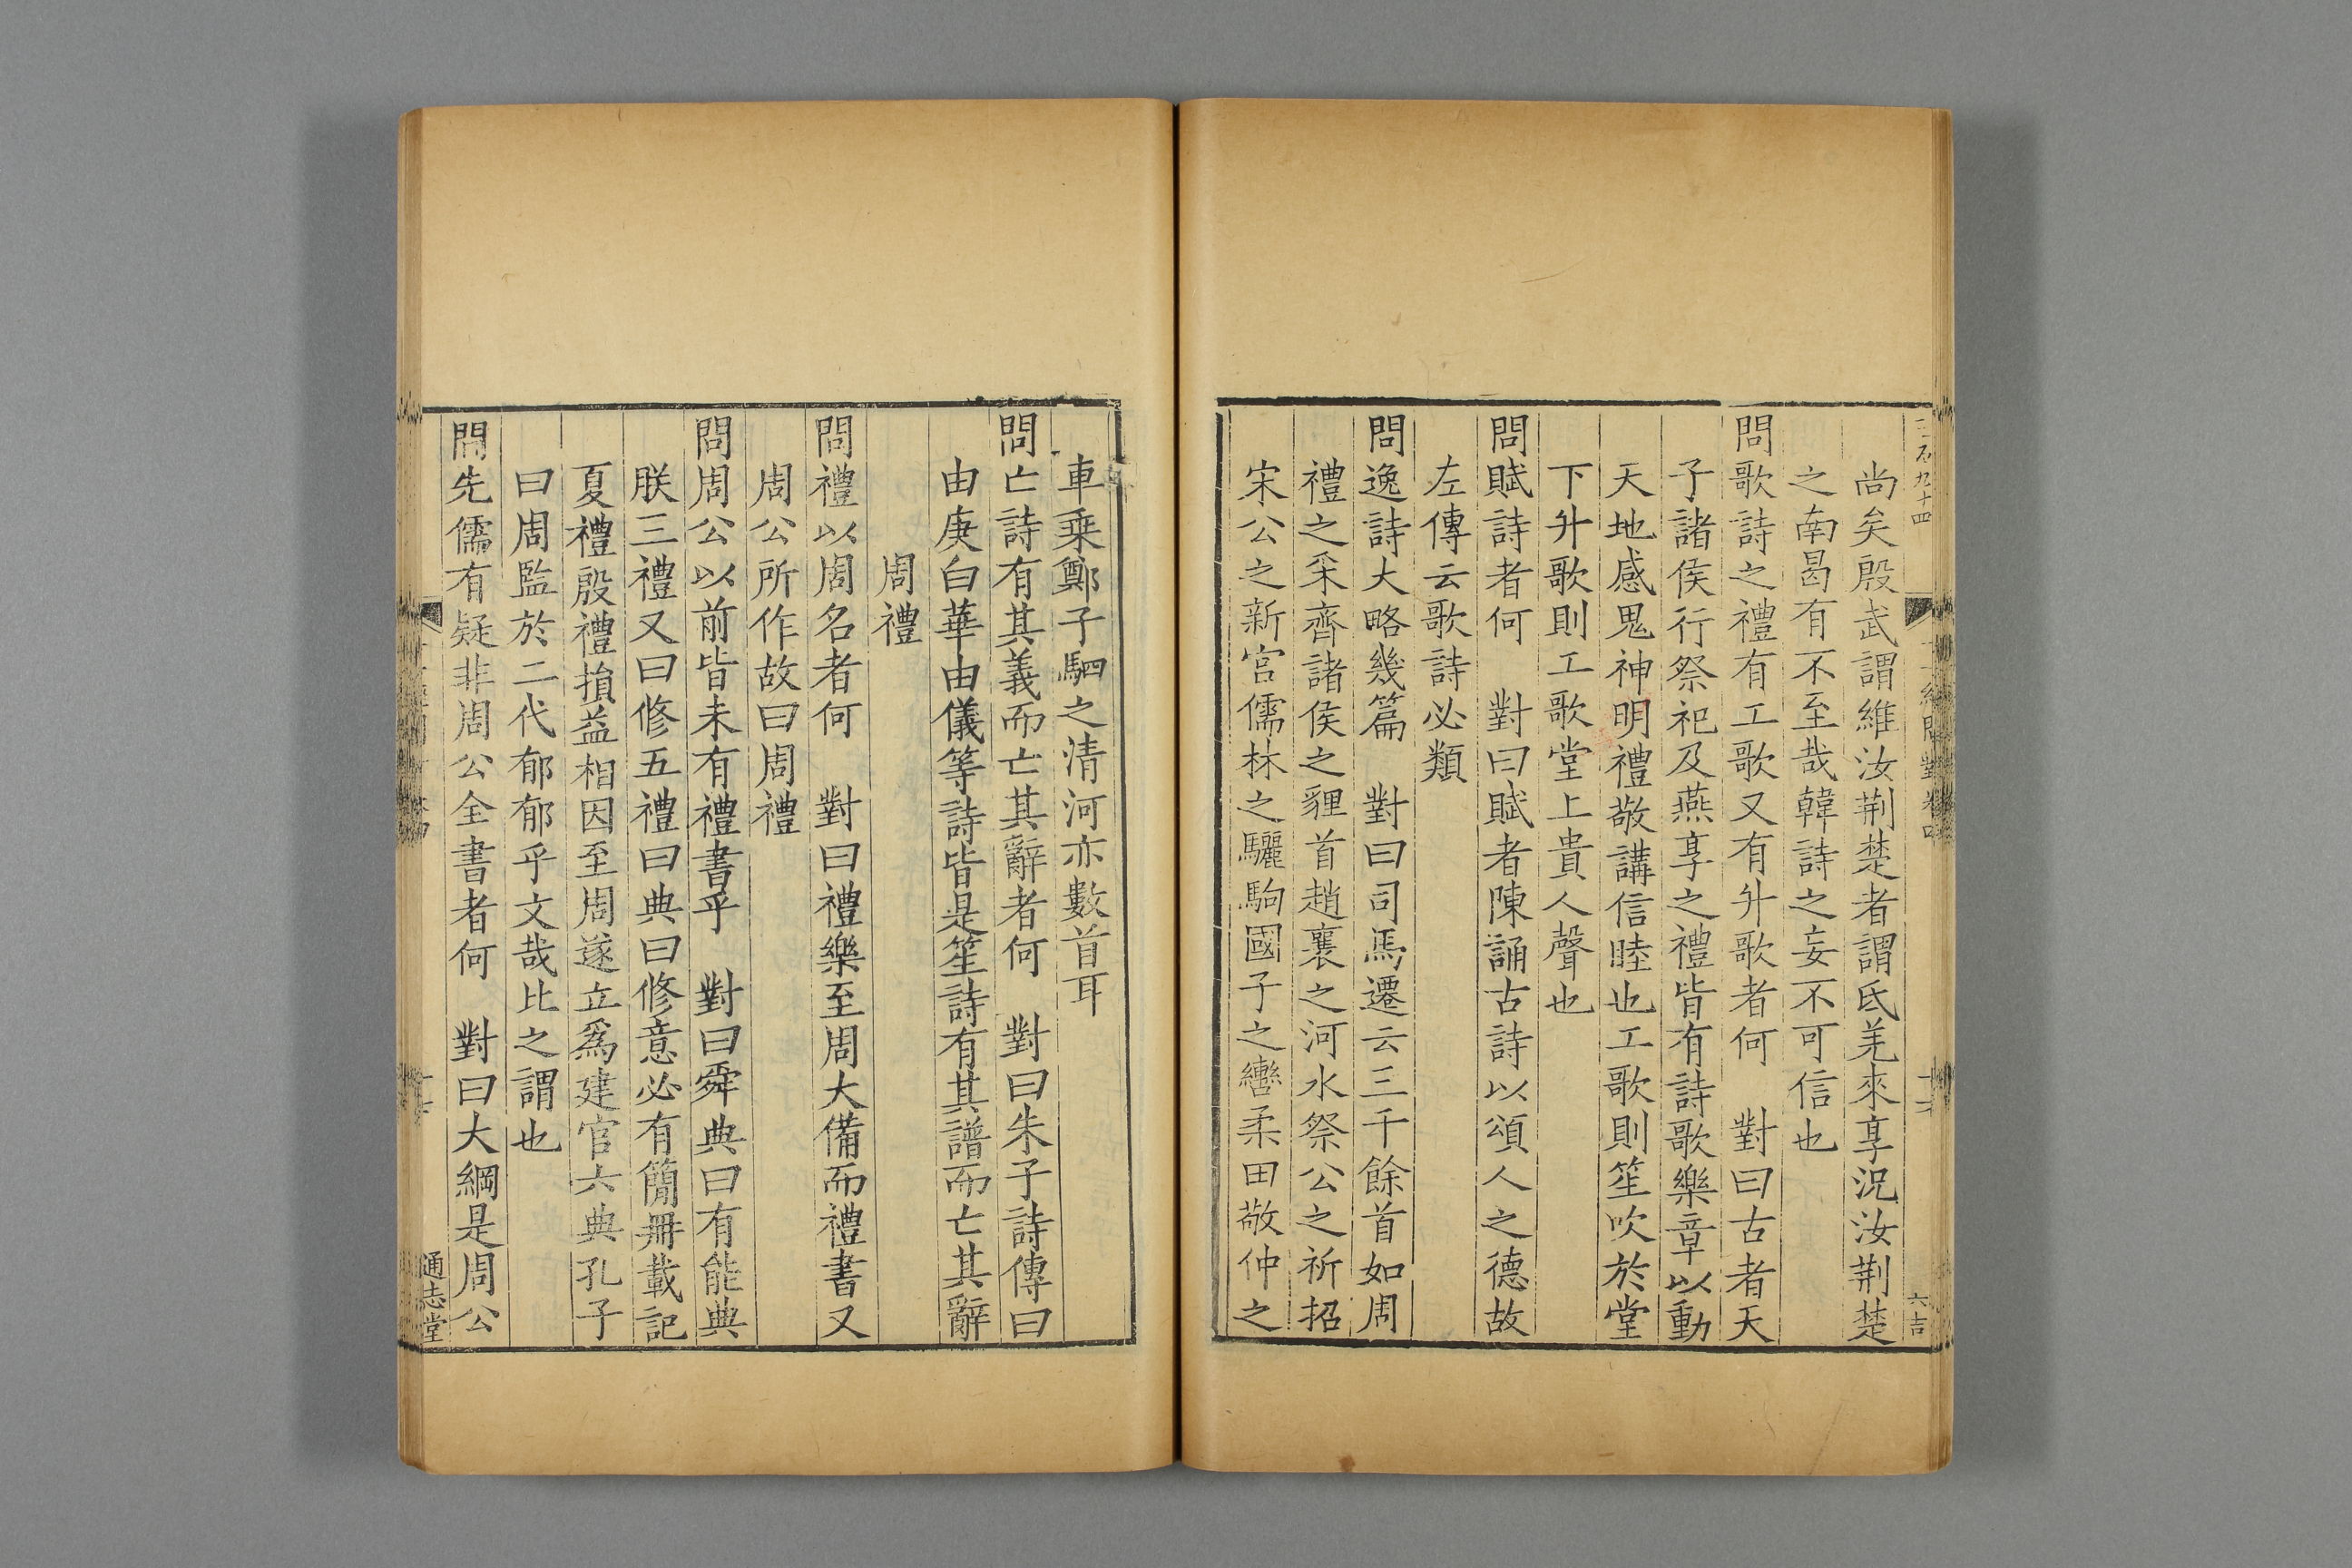 尚矣殷武謂維汝荆楚者謂氐羌來享況汝荆楚
之南曷有不至哉韓詩之妄不可信也
問歌詩之禮有工歌又有升歌者何　對曰古者天
子諸侯行祭祀及燕享之禮皆有詩歌樂章以動
天地感鬼神明禮敬講信睦也工歌則笙吹於堂
下升歌則工歌堂上貴人聲也
問賦詩者何　對曰賦者陳誦古詩以頌人之德故
左傳云歌詩必類
問逸詩大略幾篇　對曰司馬遷云三千餘首如周
禮之采齊諸侯之貍首趙襄之河水祭公之祈招
宋公之新宮儒林之驪駒國子之轡柔田敬仲之
車乘鄭子駟之清河亦數首耳
問亡詩有其義而亡其辭者何　對曰朱子詩傳曰
由庚白華由儀等詩皆是笙詩有其譜而亡其辭
周禮
問禮以周名者何　對曰禮樂至周大備而禮書又
周公所作故曰周禮
問周公以前皆未有禮書乎　對曰舜典曰有能典
朕三禮又曰修五禮曰典曰修意必有簡冊載記
夏禮殷禮損益相因至周遂立為建官六典孔子
曰周監於二代郁郁乎文哉比之謂也
問先儒有疑非周公全書者何　對曰大綱是周公
通志堂